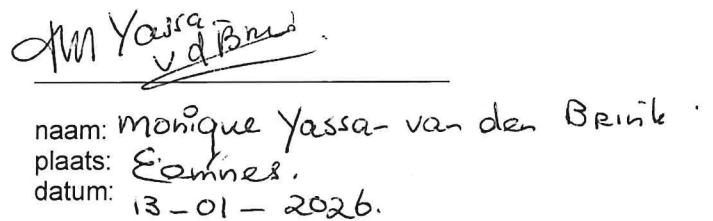 Yassa
v d Brink.
naam: Monique Yassa- van den Brink.
plaats: Eemnes.
datum: 13-01-2026.